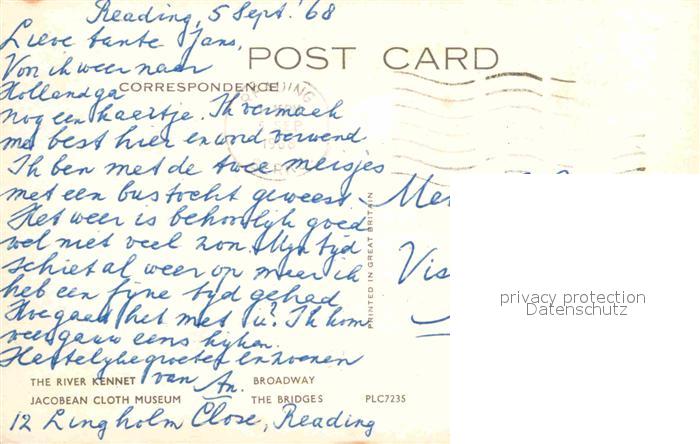 Reading, 5 Sept. '68
Lieve tante Jans,
POST CARD
Von ik weer naar
CORRESPONDENCE
Holland ga
nog een kaartje. Ik vermaek
me best hier en word verwend
Ik ben met de twee meisjes
met een bustocht geweest.
Het weer is behoorlijk goed
wel niet veel zon. Mijn tijd
schiet al weer op maar ik
heb een fijne tijd gehad
Hoe gaat het met u? Ik kom
weer gauw eens kijken.
Hartelijke groeten en zoenen
van An.
THE RIVER KENNET BROADWAY
JACOBEAN CLOTH MUSEUM THE BRIDGES PLC7235
12 Lingholm Close, Reading
PRINTED IN GREAT BRITAIN
READING
SEP
BERKS
Vis
privacy protection
Datenschutz